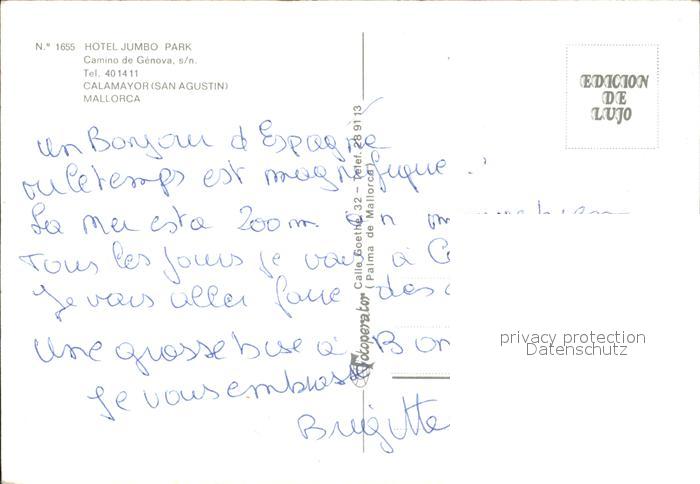 N.º 1655 HOTEL JUMBO PARK
Camino de Génova, s/n.
Tel. 401411
CALAMAYOR (SAN AGUSTIN)
MALLORCA
EDICION
DE
LUJO
Fotoperator Calle Goethe, 32 – Telef. 28 91 13
( Palma de Mallorca )
un Bonjour d'Espagne
ou le temps est magnifique.
La Mer est a 200 m on
Tous les jours je vais à
Je vais aller faire des
Une grosse bise à
Je vous embrasse
Brigitte
privacy protection
Datenschutz